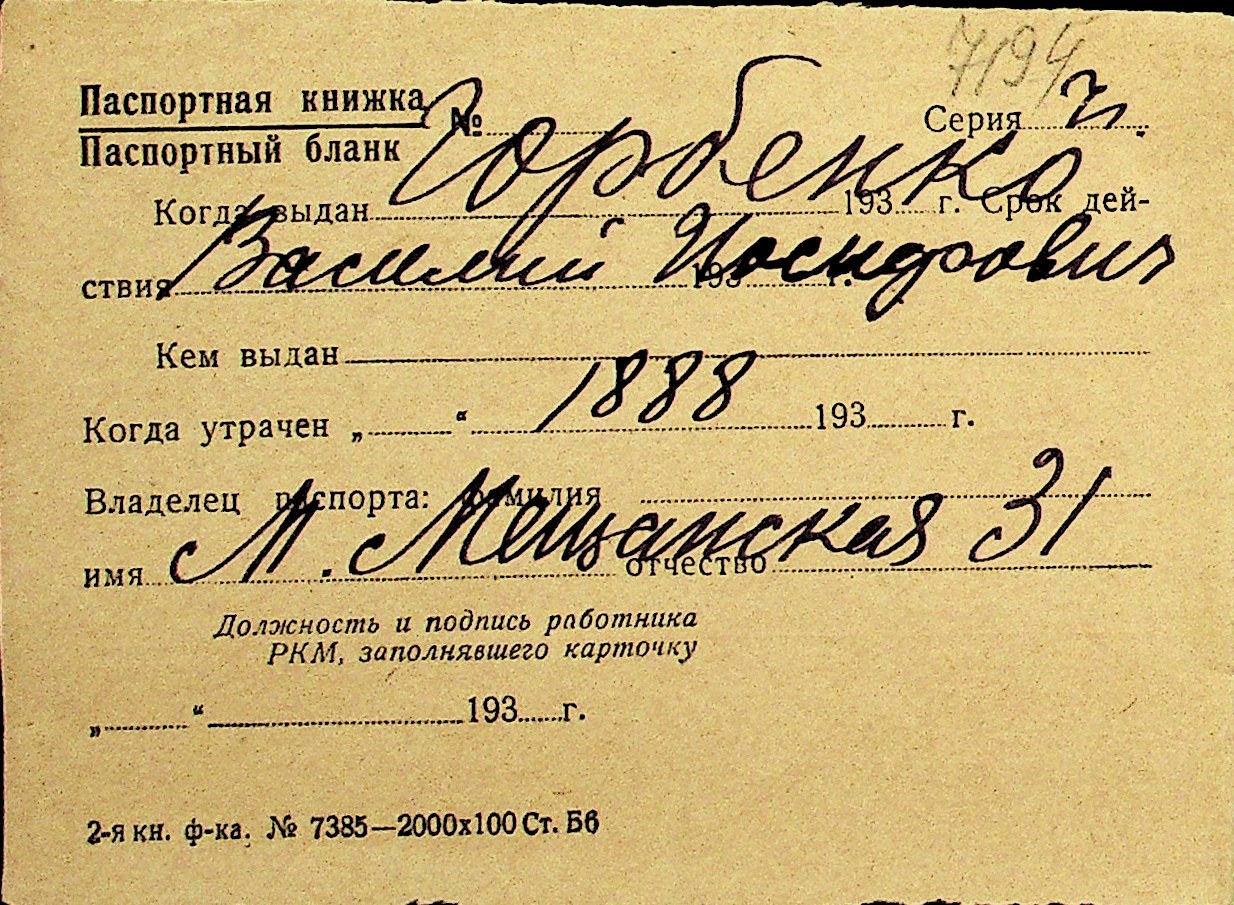 7194
Паспортная книжка
Паспортный бланк
№ Серия
Горбенко
Когда выдан 193 г. Срок дей-
Василий Иосифович
ствия 193 г.
Кем выдан
1888
Когда утрачен „ “ 193 г.
Владелец паспорта: фамилия
М. Мещанская 31
имя отчество
Должность и подпись работника
РКМ, заполнявшего карточку
„ “ 193 г.
2-я кн. ф-ка. № 7385—2000х100 Ст. Б6